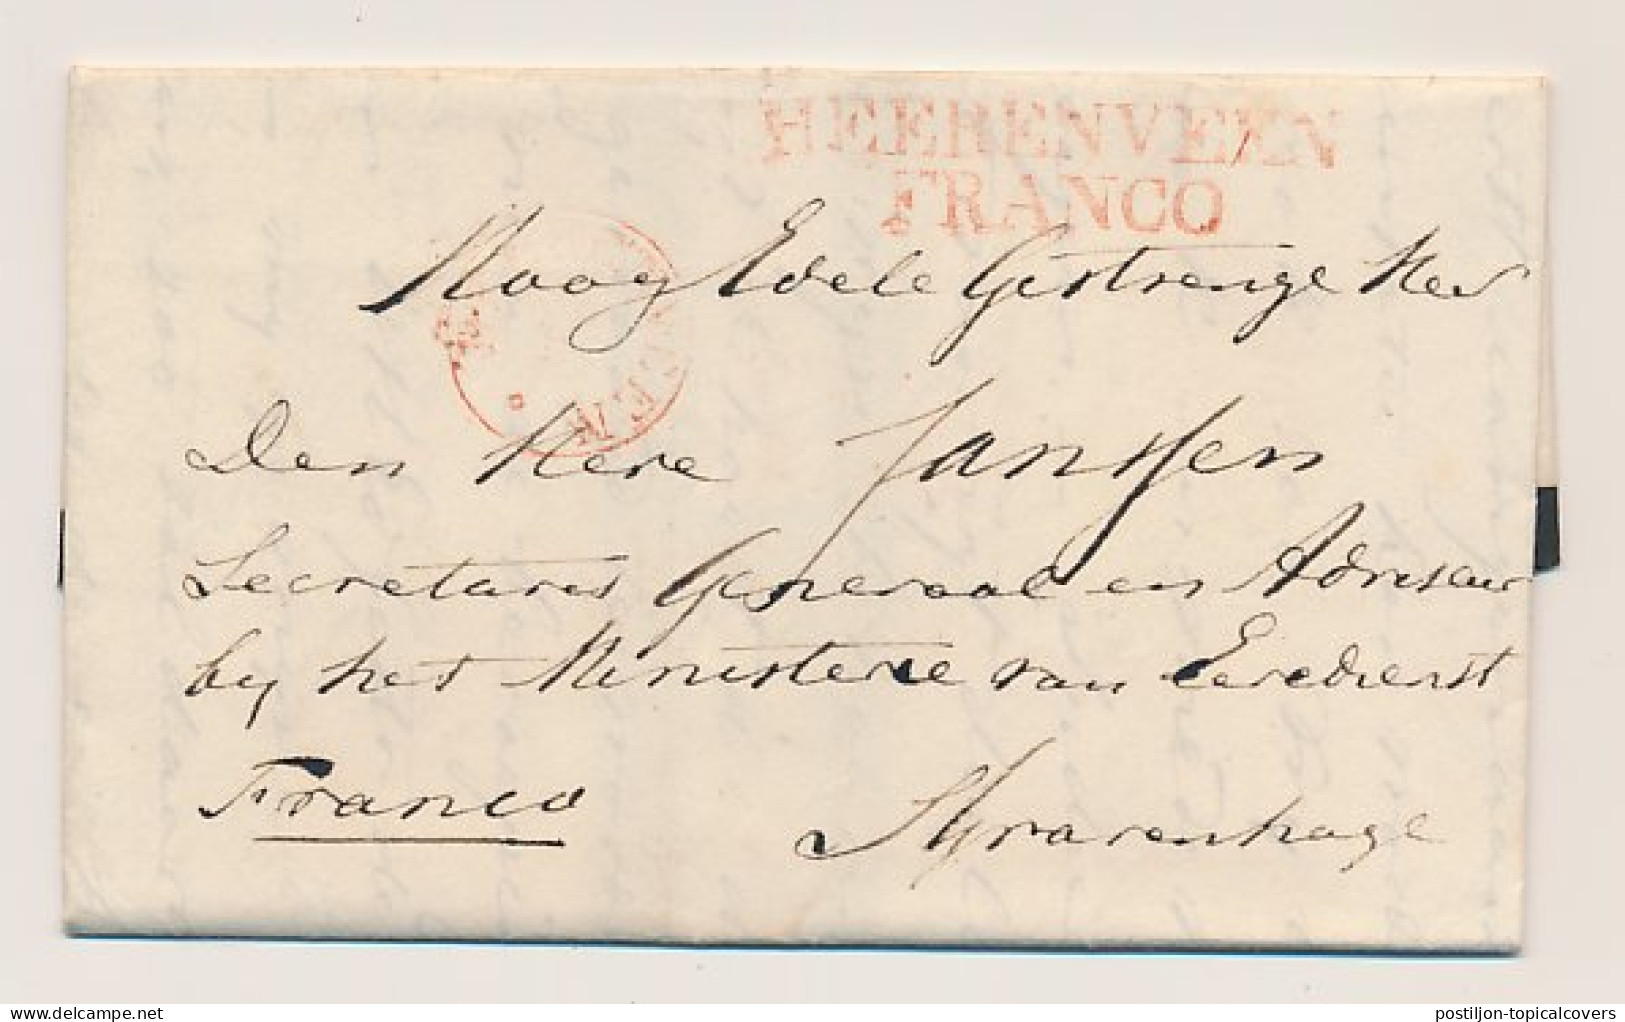 HEERENVEEN
FRANCO
Hoog Edele Gestrenge Heer
Den Here Janssen
Secretaris Generaal en Adviseur
by het Ministerie van Eeredienst
Franco
S Gravenhage
delcampe.net
postiljon-topicalcovers